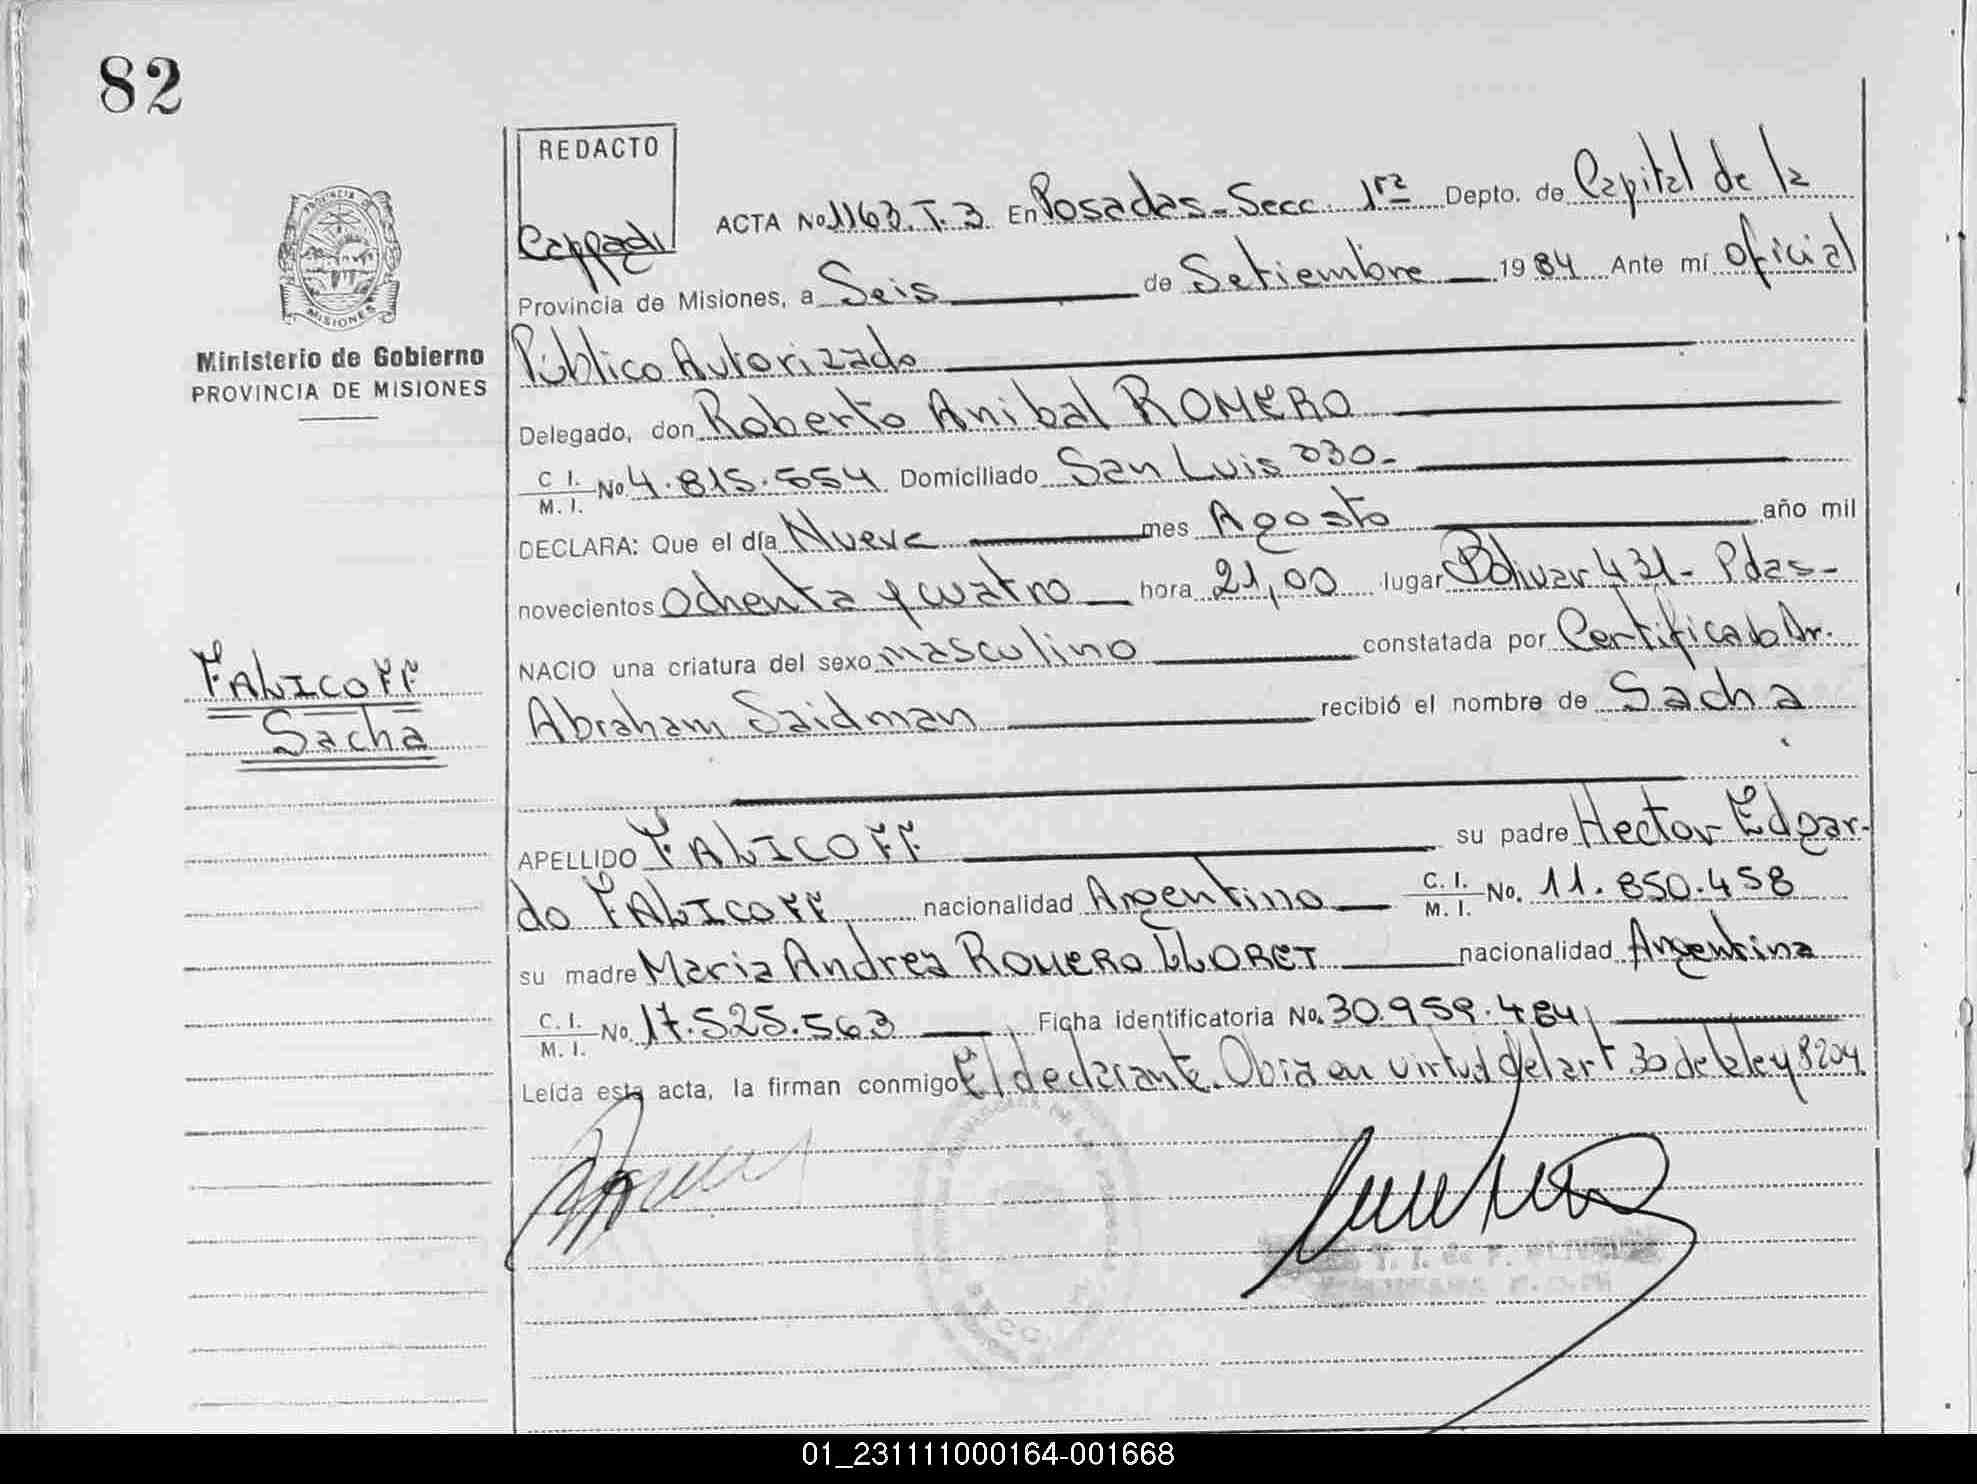 82
REDACTO
ACTA No 1163.T.3 En Posadas - Secc. 1ra Depto. de Capital de la
Provincia de Misiones, a Seis de Setiembre 1984 Ante mí Oficial
Público Autorizado
Ministerio de Gobierno
PROVINCIA DE MISIONES
Delegado, don Roberto Anibal ROMERO
C. I. M. I. No 4.815.554 Domiciliado San Luis 030-
DECLARA: Que el día Nueve mes Agosto año mil
novecientos Ochenta y cuatro hora 21,00 lugar Bolivar 431 - Pdas-
NACIO una criatura del sexo masculino constatada por Certificado Dr.
FALICOFF
Sacha
Abraham Saidman recibió el nombre de Sacha
APELLIDO FALICOFF su padre Hector Edgar-
do FALICOFF nacionalidad Argentino C. I. M. I. No. 11.850.458
su madre Maria Andrea ROMERO LLORET nacionalidad Argentina
C. I. M. I. No. 17.525.563 Ficha identificatoria No. 30.959.484
Leída esta acta, la firman conmigo El declarante. Obra en virtud del art 30 de la ley 8204
SECC.
01_231111000164-001668